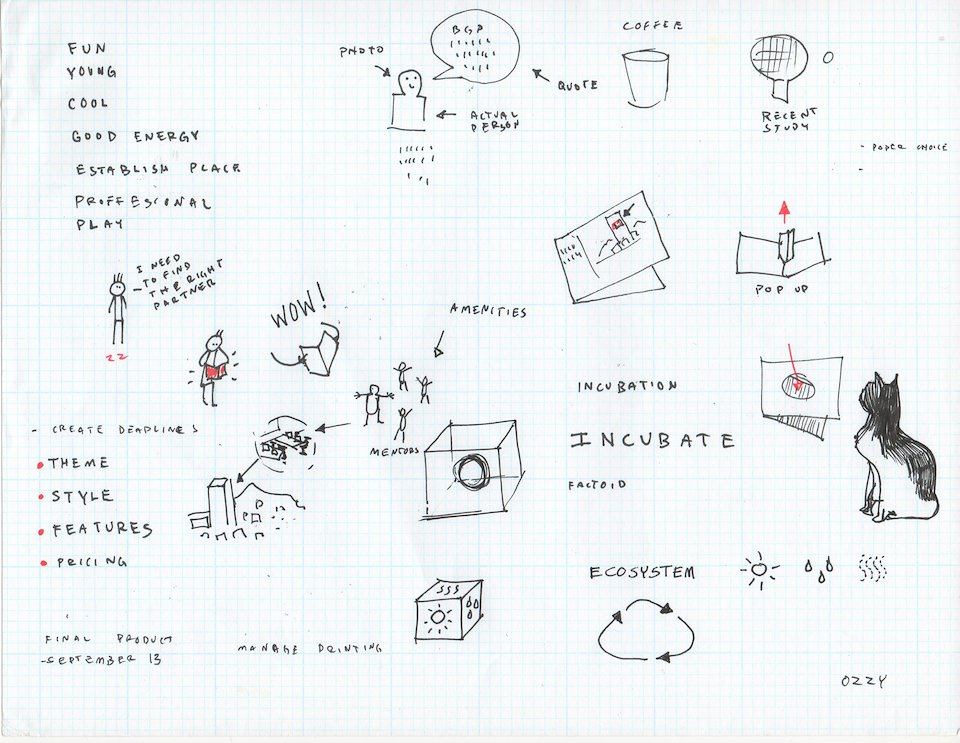 FUN
YOUNG
COOL
GOOD ENERGY
ESTABLISH PLACE
PROFFESIONAL
PLAY
PHOTO
BGP
QUOTE
ACTUAL
PERSON
COFFEE
RECENT
STUDY
- PAPER CHOICE
-
I NEED
TO FIND
THE RIGHT
PARTNER
WOW!
AMENITIES
MENTORS
POP UP
- CREATE DEADLINES
• THEME
• STYLE
• FEATURES
• PRICING
INCUBATION
INCUBATE
FACTOID
ECOSYSTEM
FINAL PRODUCT
-SEPTEMBER 13
MANAGE PRINTING
OZZY